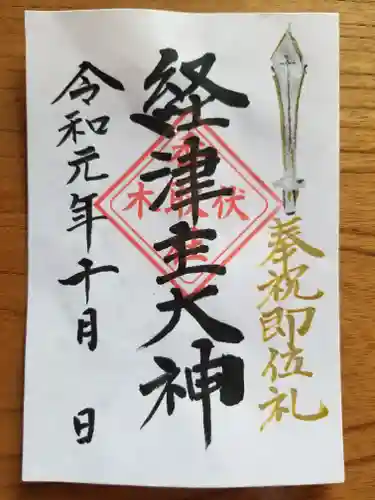 奉祝即位礼
経津主大神
令和元年十月 日